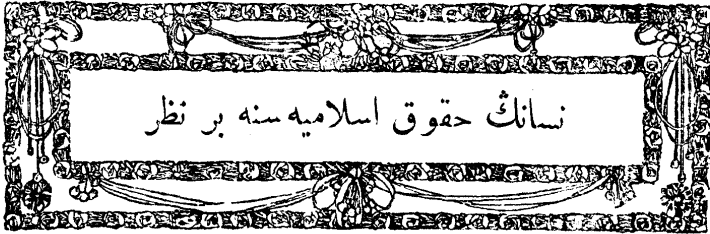 نسانڭ حقوق اسلامیه سنه بر نظر